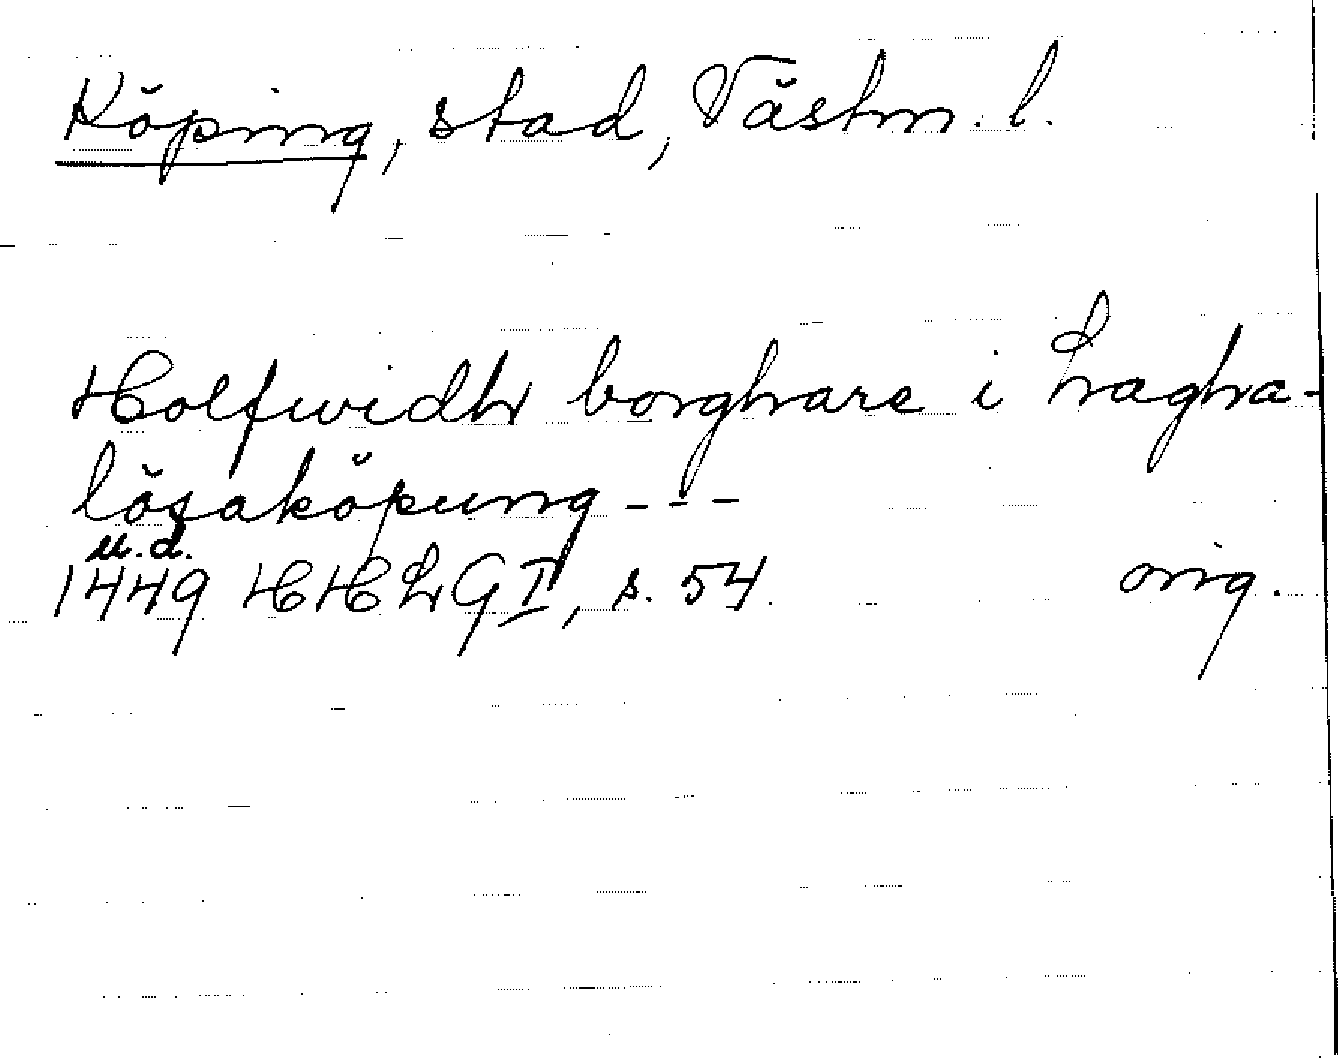 Köping, stad, Västm. l.
Holfwidh borghare i Lagha-
lösaköpung - - -
u.d.
1449 HHLG I, s. 54. orig.